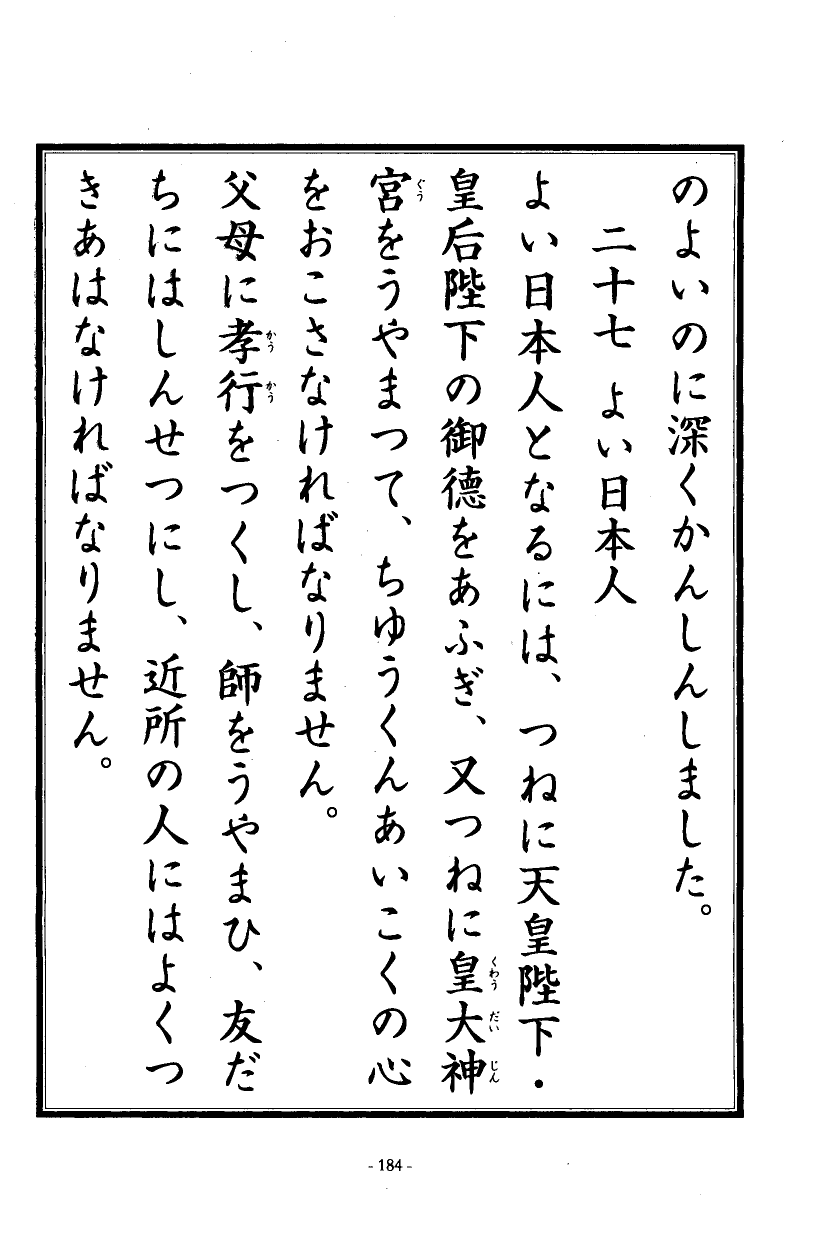 のよいのに深くかんしんしました。
二十七 よい日本人
よい日本人となるには、つねに天皇陛下・
皇后陛下の御徳をあふぎ、又つねに皇大神
くわう だい じん
宮をうやまつて、ちゆうくんあいこくの心
ぐう
をおこさなければなりません。
父母に孝行をつくし、師をうやまひ、友だ
かう かう
ちにはしんせつにし、近所の人にはよくつ
きあはなければなりません。
- 184 -